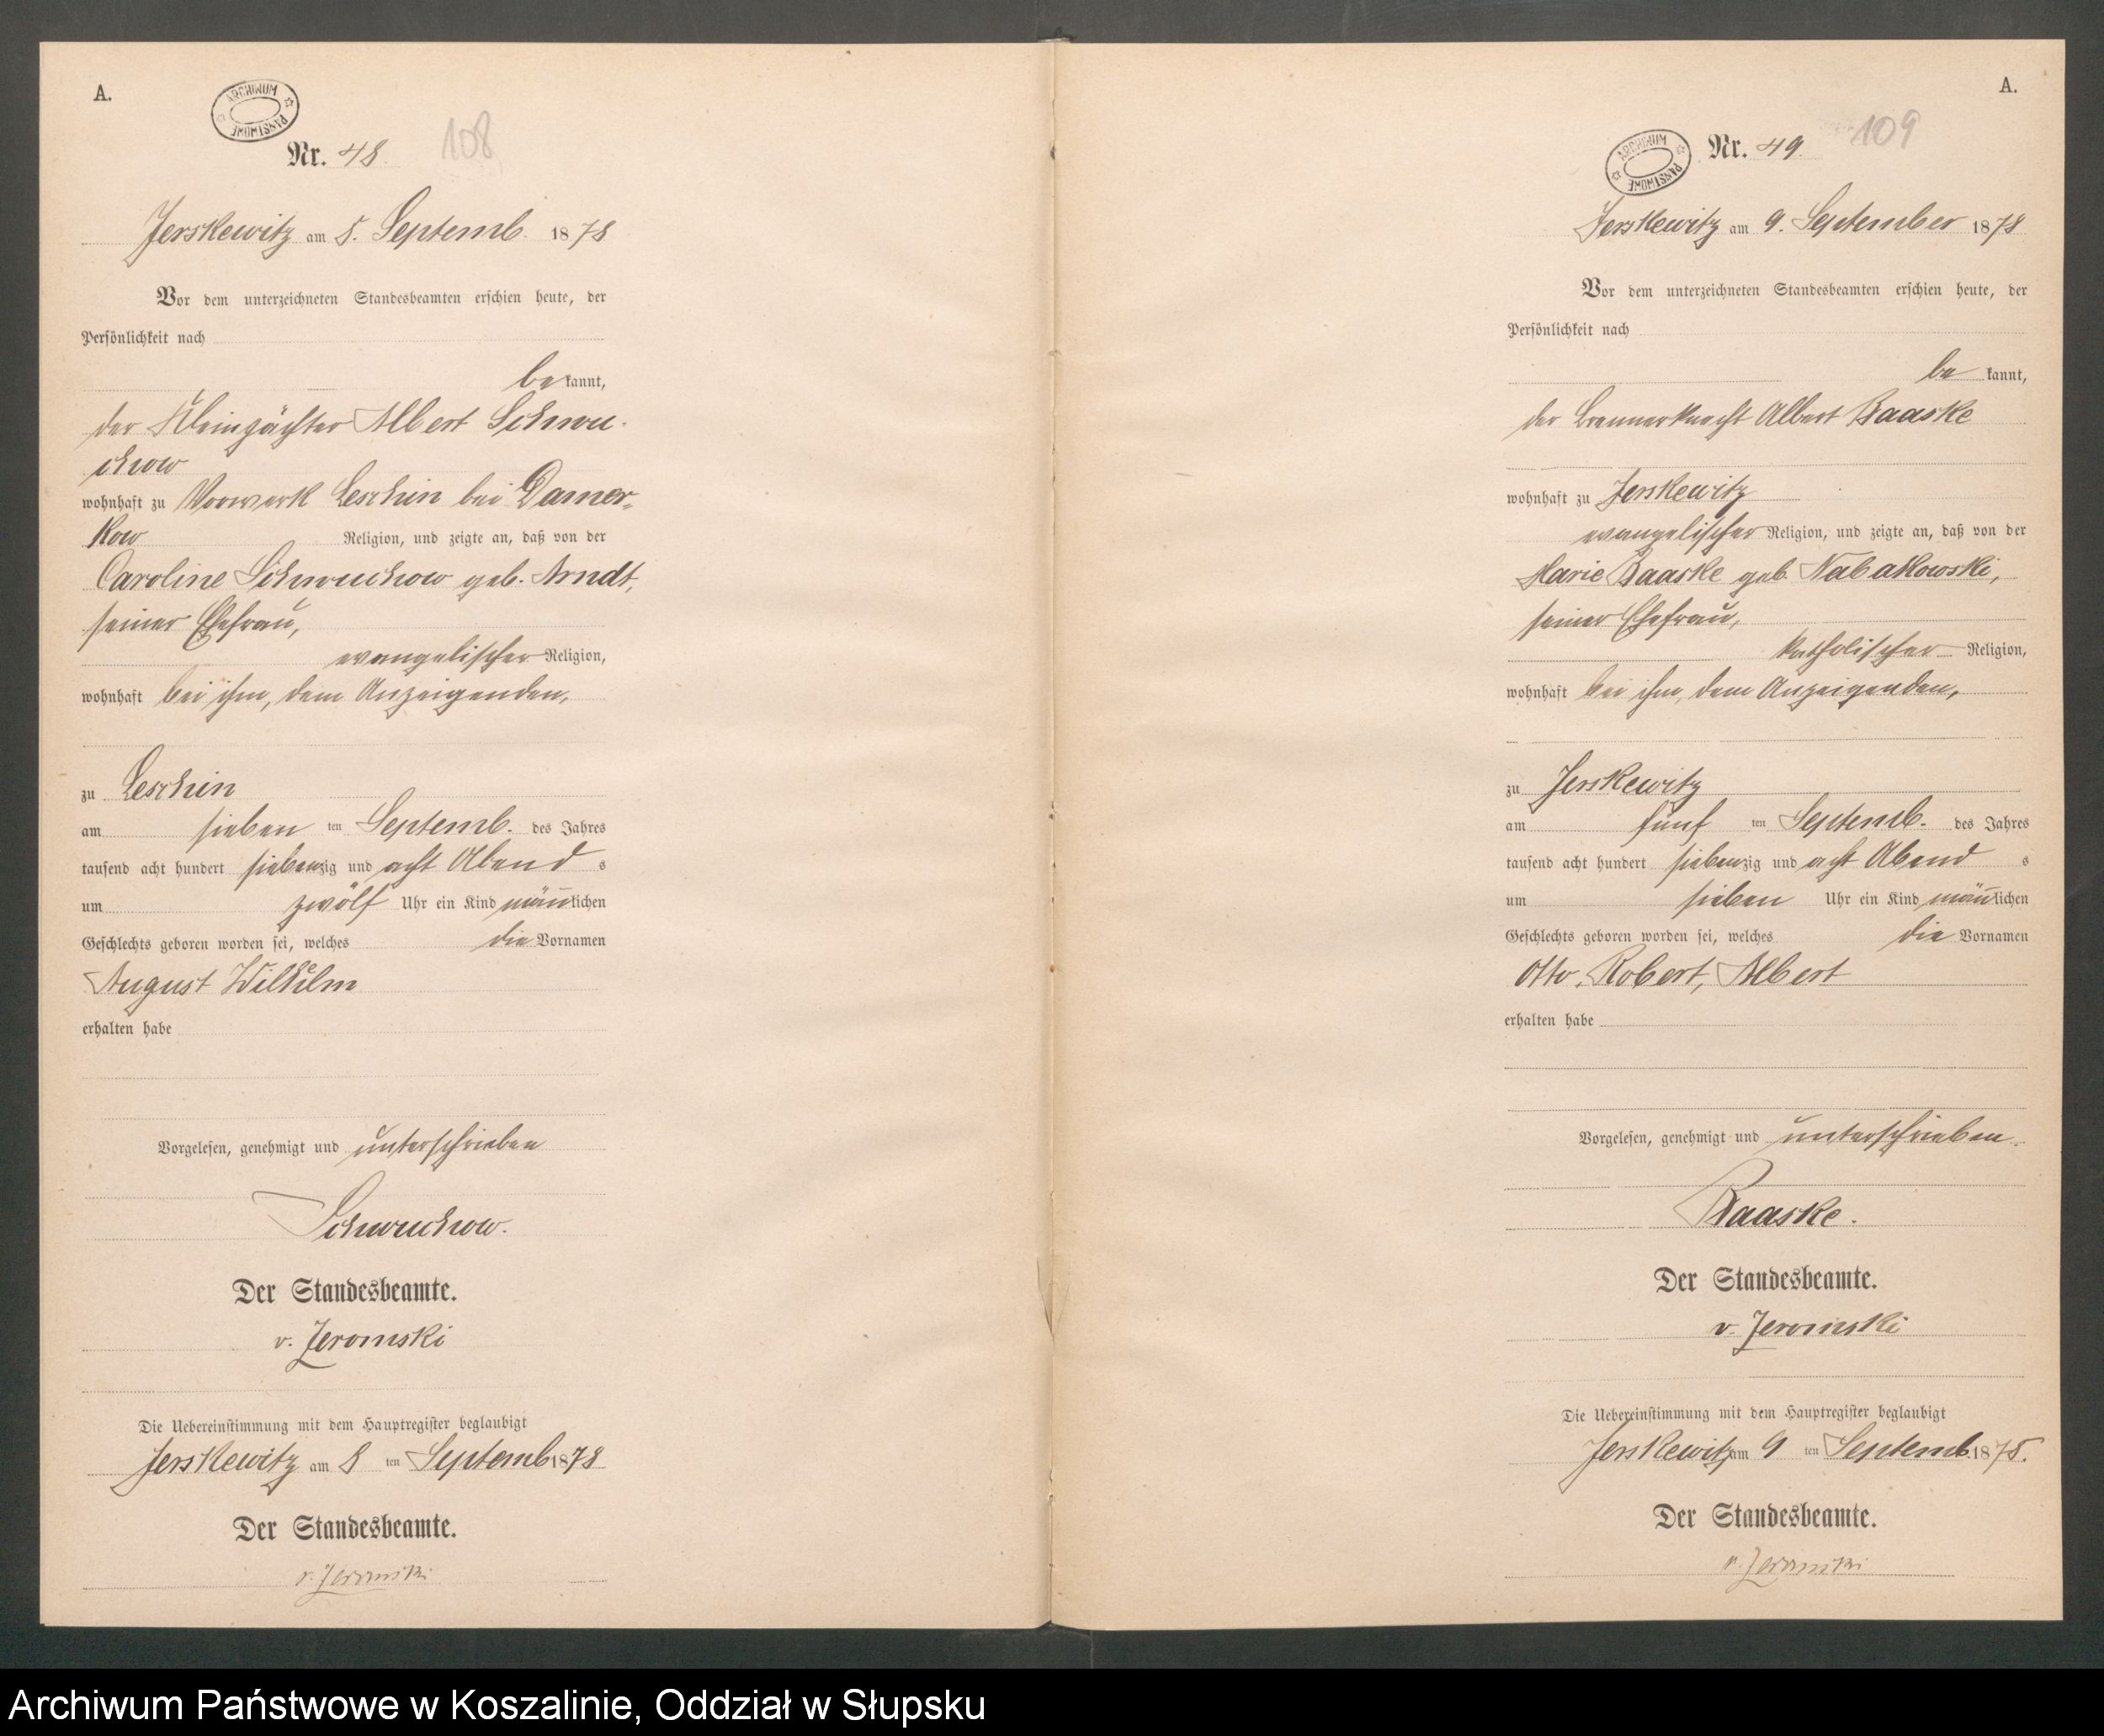 A.
ARCHIWUM PAŃSTWOWE
Nr. 48
108
Jerskewitz am 8. Septemb. 1878
Vor dem unterzeichneten Standesbeamten erschien heute, der
Persönlichkeit nach
be kannt,
der Kleinpächter Albert Schwu-
chow
wohnhaft zu Vorwerk Leschin bei Damer-
kow Religion, und zeigte an, daß von der
Caroline Schwuchow geb. Arndt,
seiner Ehefrau,
evangelischer Religion,
wohnhaft bei ihm, dem Anzeigenden,
zu Leschin
am sieben ten Septemb. des Jahres
tausend acht hundert siebenzig und acht Abend s
um zwölf Uhr ein Kind männlichen
Geschlechts geboren worden sei, welches die Vornamen
August Wilhelm
erhalten habe
Vorgelesen, genehmigt und unterschrieben
Schwuchow.
Der Standesbeamte.
v. Jeromski
Die Uebereinstimmung mit dem Hauptregister beglaubigt
Jerskewitz am 8 ten Septemb 1878
Der Standesbeamte.
v. Jeromski
A.
ARCHIWUM PAŃSTWOWE
Nr. 49.
109
Jerskewitz am 9. September 1878
Vor dem unterzeichneten Standesbeamten erschien heute, der
Persönlichkeit nach
be kannt,
der Brennerknecht Albert Baaske
wohnhaft zu Jerskewitz
evangelischer Religion, und zeigte an, daß von der
Marie Baaske geb. Nabakowski,
seiner Ehefrau,
katholischer Religion,
wohnhaft bei ihm, dem Anzeigenden,
zu Jerskewitz
am fünf ten Septemb. des Jahres
tausend acht hundert siebenzig und acht Abend s
um sieben Uhr ein Kind männlichen
Geschlechts geboren worden sei, welches die Vornamen
Otto, Robert, Albert
erhalten habe
Vorgelesen, genehmigt und unterschrieben.
Baaske.
Der Standesbeamte.
v. Jeromski
Die Uebereinstimmung mit dem Hauptregister beglaubigt
Jerskewitz am 9 ten Septemb. 1878.
Der Standesbeamte.
v. Jeromski
Archiwum Państwowe w Koszalinie, Oddział w Słupsku